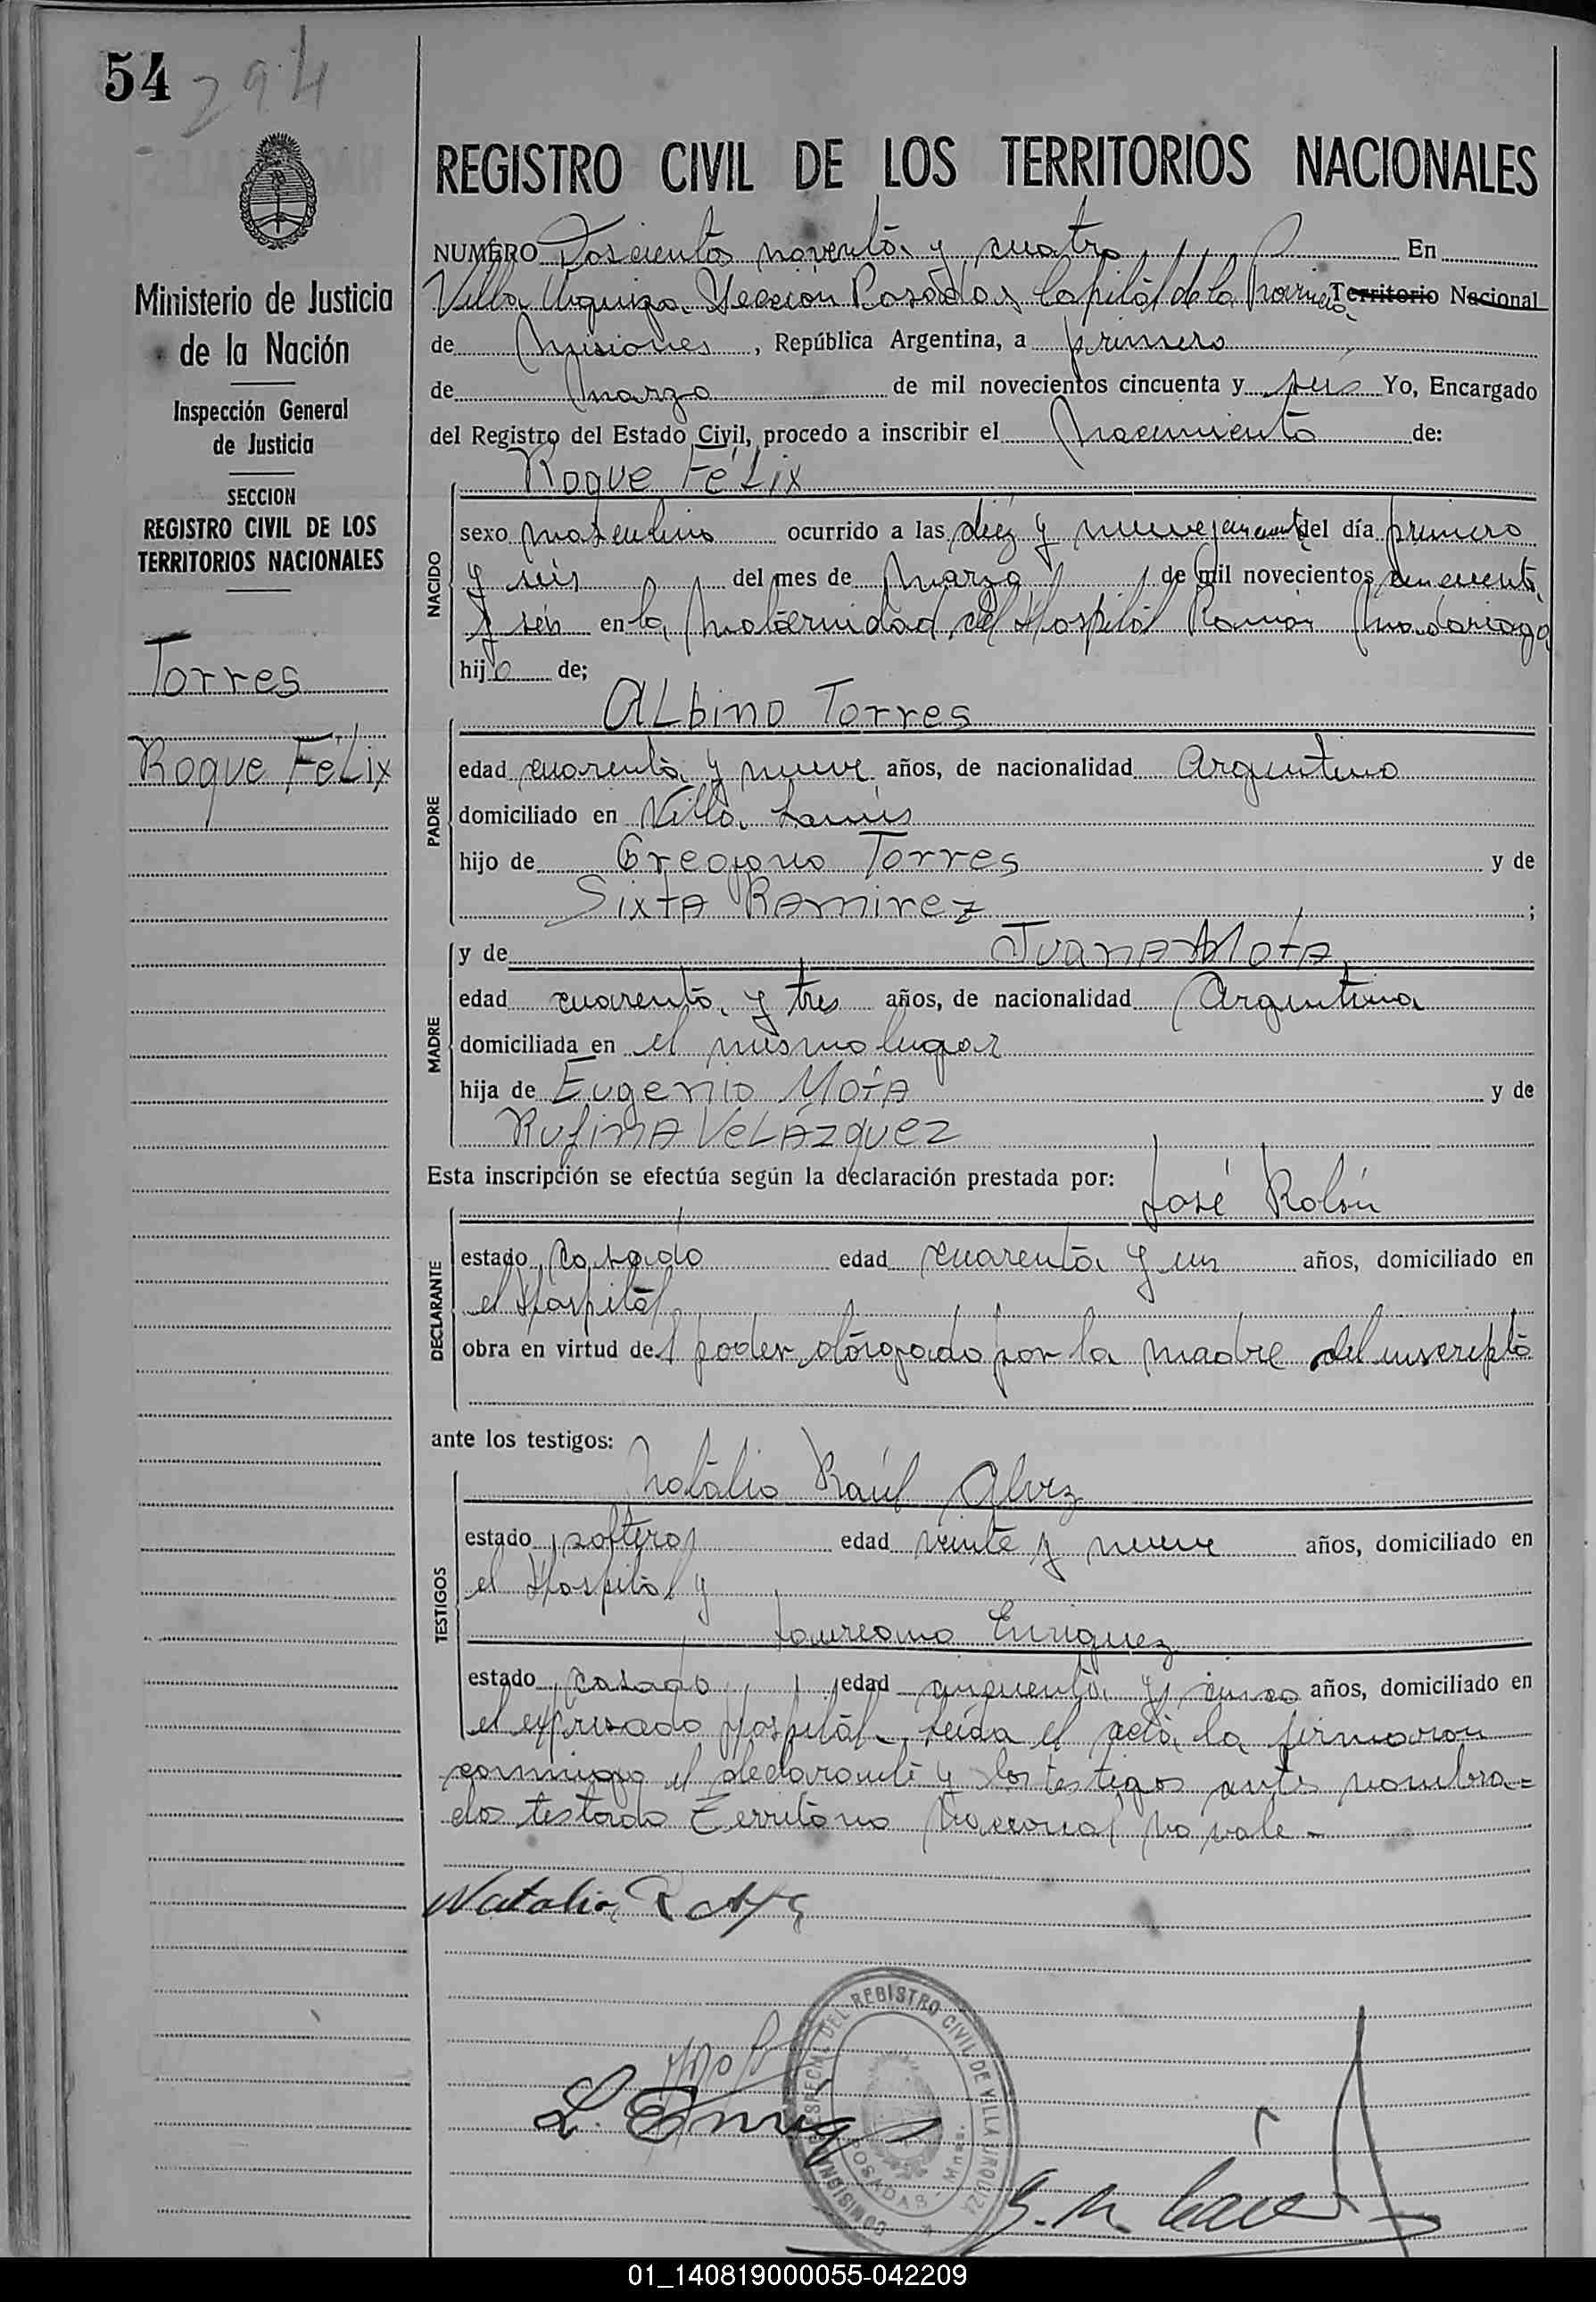 54 294
REGISTRO CIVIL DE LOS TERRITORIOS NACIONALES
NUMERO Doscientos noventa y cuatro En
Villa Urquiza Sección Posadas Capital de la Provincia Territorio Nacional
de Misiones, República Argentina, a primero
de marzo de mil novecientos cincuenta y seis Yo, Encargado
del Registro del Estado Civil, procedo a inscribir el nacimiento de:
Ministerio de Justicia
de la Nación
Inspección General
de Justicia
SECCION
REGISTRO CIVIL DE LOS
TERRITORIOS NACIONALES
Torres
Roque FéLix
NACIDO
Roque FéLix
sexo masculino ocurrido a las diez y nueve del día primero
y seis del mes de marzo de mil novecientos cincuenta
y seis en la maternidad del Hospital Ramón Madariaga
hijo de;
PADRE
ALbino Torres
edad cuarenta y nueve años, de nacionalidad Argentino
domiciliado en Villa Lanús
hijo de Gregorio Torres y de
Sixta Ramirez ;
MADRE
y de Juana Mota
edad cuarenta y tres años, de nacionalidad Argentina
domiciliada en el mismo lugar
hija de Eugenio Mota y de
Rufina VeLázquez
Esta inscripción se efectúa según la declaración prestada por:
DECLARANTE
José Rolón
estado casado edad cuarenta y un años, domiciliado en
el Hospital
obra en virtud del poder otorgado por la madre del inscripto
ante los testigos:
TESTIGOS
Natalio Raúl Alvez
estado soltero edad veinte y nueve años, domiciliado en
el Hospital y
Laureano Enriquez
estado casado edad cincuenta y cinco años, domiciliado en
el expresado Hospital. Leída el acta la firmaron
conmigo el declarante y los testigos antes nombra=
dos testado Territorio Nacional no vale -
Natalio R
L. Enriq
COMISION ESPECIAL DEL REGISTRO CIVIL DE VILLA URQUIZA
POSADAS Mnes.
01_140819000055-042209